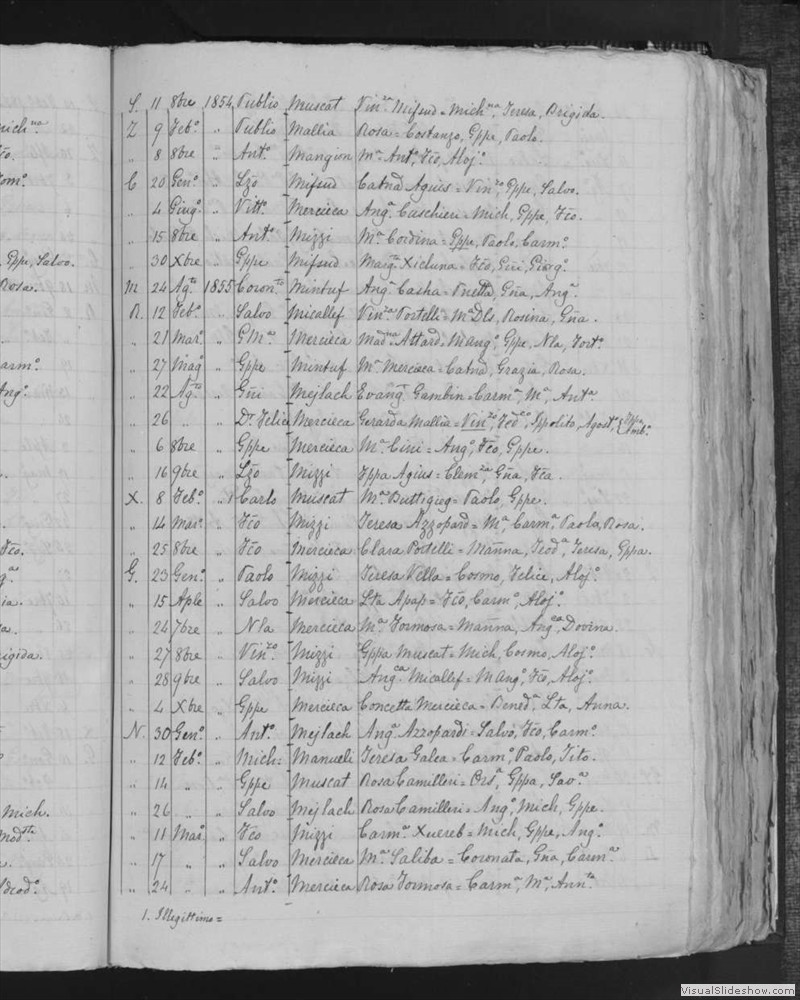 S. 11 8bre 1854 Publio Muscat Vinza Mifsud = Michna, Teresa, Brigida.
Z 9 Febo „ Publio Mallia Rosa = Costanzo, Gppe, Paolo.
„ 8 8bre „ Anto Mangion Ma Anto, Fco, Alojo.
C 20 Geno „ Lzo Mifsud Catna Agius = Vinzo, Gppe, Salvo.
„ 4 Giugo „ Vitto Mercieca Anga Caschieu = Mich, Gppe, Fco.
„ 15 8bre „ Anto Mizzi Ma Cordina = Gppe, Paolo, Carmo.
„ 30 Xbre „ Gppe Mifsud Margta Xicluna = Fco, Gñi, Giorgo.
M 24 Agto 1855 Coronto Mintuf Anga Casha = Gña, Anga.
R. 12 Febo „ Salvo Micallef Vinza Portelli = Ma Dls, Rosina, Gña.
„ 21 Maro „ GMa Mercieca Madna Attard = Mango, Gppe, Nla, Forto.
„ 27 Mago „ Gppe Mintuf Ma Mercieca = Catna, Grazia, Rosa.
„ 22 Agto „ Gñi Mejlach Evanga Gambin = Carma, Ma, Anta
„ 26 „ „ Dr Felice Mercieca Gerarda Mallia = Vinzo, Fedco, Ippolito, Agosto,
„ 6 8bre „ Gppe Mercieca Ma Cini = Ango, Fco, Gppe.
„ 16 9bre „ Lzo Mizzi Gppa Agius = Clemza, Gña, Fca.
X. 8 Febo „ 1 Carlo Muscat Ma Buttigieg = Paolo, Gppe.
„ 14 Maro „ Fco Mizzi Teresa Azzopard = Ma, Carma, Paola, Rosa.
„ 25 8bre „ Fco Mercieca Clara Portelli = Mañna, Teoda, Teresa, Gppa.
G. 23 Geno „ Paolo Mizzi Teresa Vella = Cosmo, Felice, Alojo.
„ 15 Aple „ Salvo Mercieca Lta Apap = Fco, Carmo, Alojo.
„ 24 7bre „ Nla Mercieca Ma Formosa = Mañna, Angca, Dovina.
„ 27 8bre „ Vinzo Mizzi Gppa Muscat = Mich, Cosmo, Alojo.
„ 28 9bre „ Salvo Mizzi Angca Micallef = Mango, Fco, Alojo.
„ 4 Xbre „ Gppe Mercieca Concetta Mercieca = Beneda, Lta, Anna.
N. 30 Geno „ Anto Mejlach Anga Azzopardi = Salvo, Fco, Carmo.
„ 12 Febo „ Mich: Manueli Teresa Galea = Carmo, Paolo, Tito.
„ 14 „ „ Gppe Muscat Rosa Camilleri = Orsa, Gppa, Sava.
„ 26 „ „ Salvo Mejlach Rosa Camilleri = Ango, Mich, Gppe.
„ 11 Maro „ Fco Mizzi Carma Xuereb = Mich, Gppe, Ango.
„ 17 „ „ Salvo Mercieca Ma Saliba = Coronata, Gña, Carma.
„ 24 „ „ Anto Mercieca Rosa Formosa = Carma, Ma, Annta
1. Illegittimo =
VisualSlideshow.com